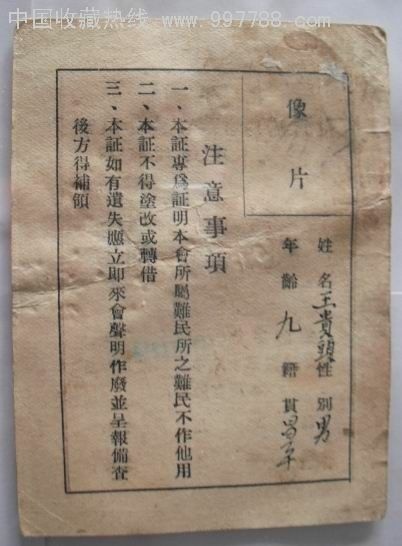 中国收藏热线 www.997788.com
像片
姓名王貴頭性別男
年齡九籍貫昌平
注意事項
一、本証專爲証明本會所屬難民所之難民不作他用
二、本証不得塗改或轉借
三、本証如有遺失應立即來會聲明作廢並呈報備查
後方得補領